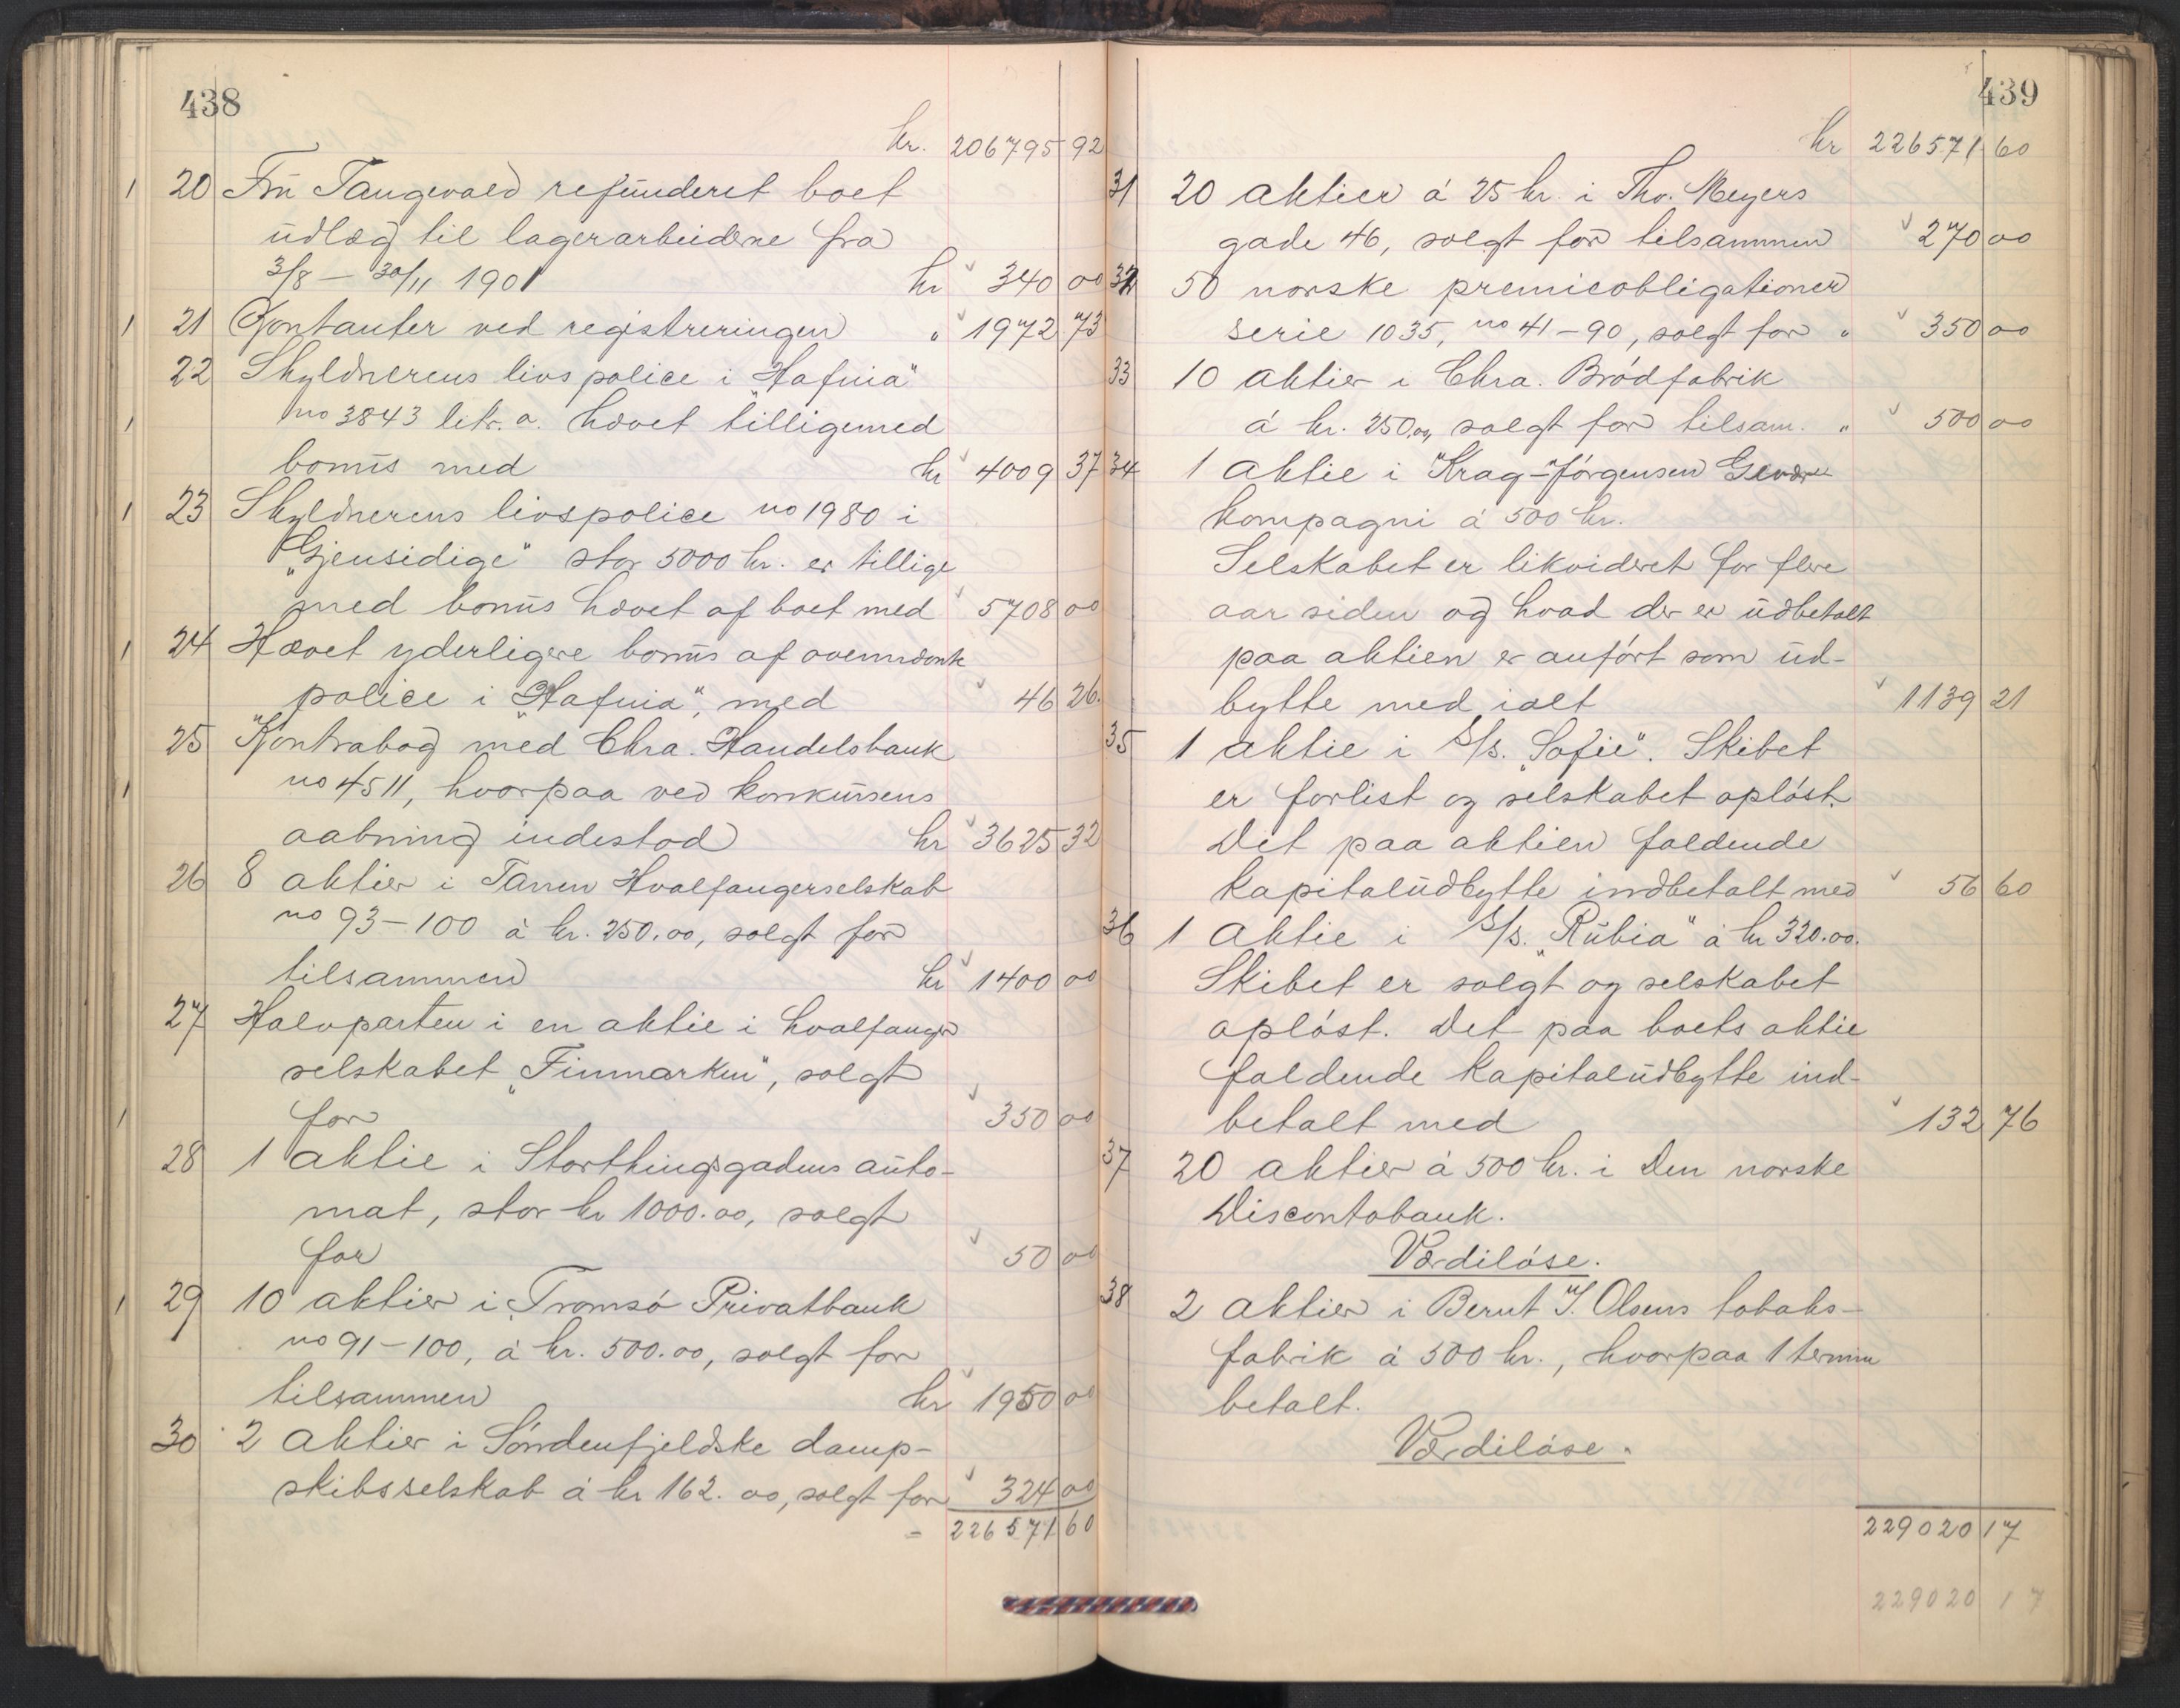 438
kr. 206795 92
20 Fru Tangevald refunderet boet
udlæg til lagerarbeiderne fra
3/8 – 30/11 1901 kr 340 00
21 Kontanter ved registreringen " 1972 73
22 Skyldnerens livspolice i „Hafnia"
no 3843 litr. a. hævet tilligemed
bonus med kr 4009 37
23 Skyldnerens livspolice no 1980 i
„Gjensidige" stor 5000 kr. er tillige
med bonus hævet af boet med 5708 00
24 Hævet yderligere bonus af ovennævnte
police i „Hafnia", med 46 26.
25 Kontrabog med Chra. Handelsbank
no 4511, hvorpaa ved konkursens
aabning indestod kr 3625 32
26 8 aktier i Tanen Hvalfangerselskab
no 93–100 à kr. 250.00, solgt for
tilsammen kr 1400 00
27 Halvparten i en aktie i hvalfanger
selskabet „Finmarken", solgt
for 350 00
28 1 aktie i Storthingsgadens auto-
mat, stor kr 1000.00, solgt
for 50 00
29 10 aktier i Tromsö Privatbank
no 91–100, à kr. 500.00, solgt for
tilsammen kr 1950 00
30 2 aktier i Söndenfjeldske damp-
skibsselskab à kr 162.00, solgt for 324 00
= 226571 60
439
kr 226571 60
31 20 aktier á 25 kr. i Tho. Meyers
gade 46, solgt for tilsammen 270 00
32 50 norske premieobligationer
serie 1035, no 41–90, solgt for " 350 00
33 10 aktier i Chra. Brödfabrik
á kr. 250.00, solgt for tilsam. " 500 00
34 1 aktie i "Krag-Jörgensen Gevær
kompagni á 500 kr.
Selskabet er likvideret for flere
aar siden og hvad der er udbetalt
paa aktien er anført som ud-
bytte med ialt 1139 21
35 1 aktie i S/S. „Sofie". Skibet
er forlist og selskabet opløst.
Det paa aktien faldende
kapitaludbytte indbetalt med 56 60
36 1 aktie i S/S. „Rubia" á kr 320.00.
Skibet er solgt og selskabet
opløst. Det paa boets aktie
faldende kapitaludbytte ind-
betalt med 132 76
37 20 aktier á 500 kr. i Den norske
Discontobank.
Værdiløse.
38 2 aktier i Bernt J. Olsens tobaks-
fabrik á 500 kr., hvorpaa 1 termin
betalt.
Værdiløse.
229020 17
229020 17